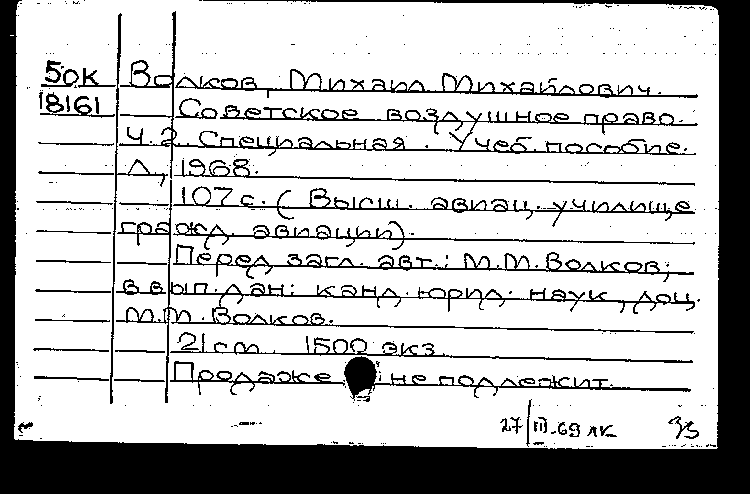 50к Волков, Михаил Михайлович.
18161 Советское воздушное право.
Ч. 2. Специальная. Учеб. пособие.
Л., 1968.
107 с. (Высш. авиац. училище
гражд. авиации).
Перед загл. авт.: М.М. Волков;
в вып. дан: канд. юрид. наук, доц.
М.М. Волков.
21 cm. 1500 экз.
Продаже не подлежит.
27/III-69 лк